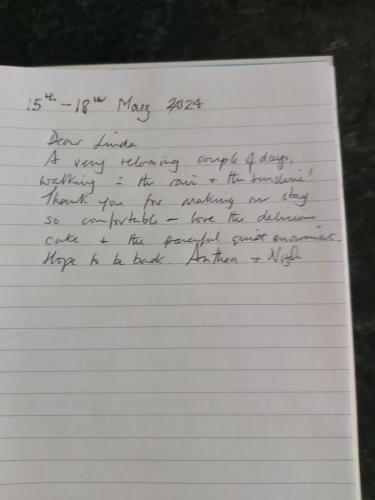 15th - 18th May 2024
Dear Linda
A very relaxing couple of days,
walking in the rain + the sunshine!
Thank you for making our stay
so comfortable - love the delicious
cake + the peaceful quiet
Hope to be back. Anthea +